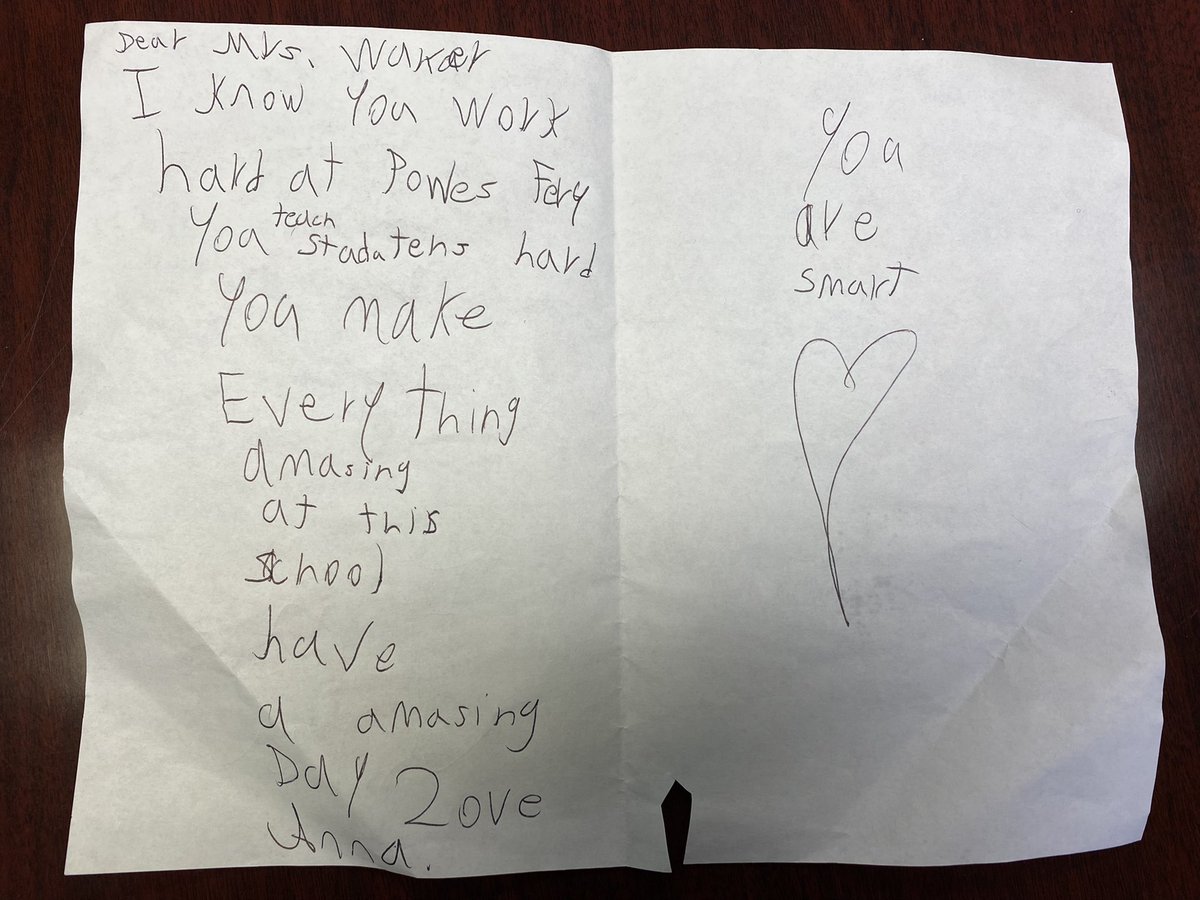 Dear Mrs. Wakaer
I know you work
hard at Powes Fery
you teach stadatens hard
you make
Every thing
amasing
at this
school
have
a amasing
Day Love
Anna.
you
are
smart